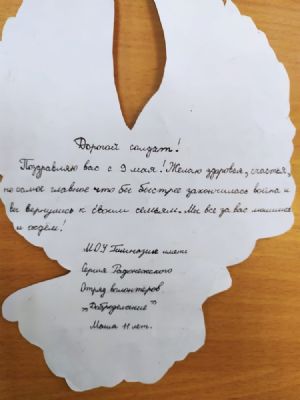 Дорогой солдат!
Поздравляю вас с 9 мая! Желаю здоровья, счастья,
но самое главное что бы быстрее закончилась война и
вы вернулись к своим семьям. Мы все за вас молимся
и ждём!
МОУ Гимназия имени
Сергия Радонежского
Отряд волонтеров
"Доброделание"
Маша 11 лет.